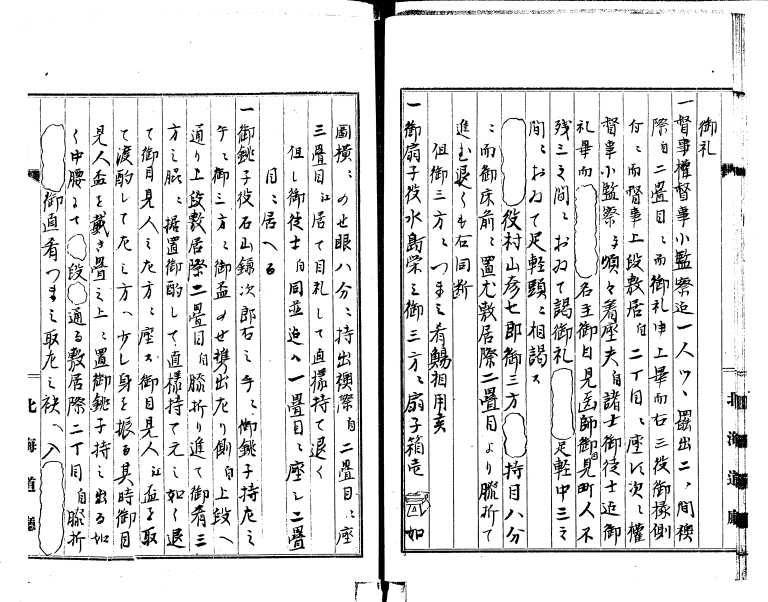 御礼
一督事權督事小監察迄一人ツヽ罷出二ノ間襖
際自二畳目ニ而御礼申上畢而右三役御椽側
付ニ而督事上段敷居自二丁目ニ座ス次ニ權
督事小監察与順々着座夫自諸士御徒士迄御
礼畢而　名主御目見医師御目見町人不
残三之間ニおゐて謁御礼　足軽中三之
間ニおゐて足軽頭ニ相謁ス
役村山彦七郎御三方　持目八分
ニ而御床前ニ置尤敷居際二畳目より膝折て
進む退くも右同断
但御三方ニつまミ肴鯣相用亥
一御扇子役水島栄之御三方ニ扇子箱壱　如
圖横ニのせ眼八分ニ持出襖際自二畳目ニ座
三畳目江居て目礼して直様持て退く
但し御徒士自同並迄ハ一畳目ニ座し二畳
目ニ居へる
一御銚子役石山鎌次郎右之手ニ御銚子持左之
手ニ御三方ニ御盃のせ携出左り側自上段へ
通り上段敷居際二畳目自膝折り進て御肴三
方之脇ニ据置御酌して直様持て元之如く退
て御目見人之左方ニ座ス御目見人江盃を取
て渡酌して左之方へ少し身を振る其時御目
見人盃を戴き畳之上ニ置御銚子持之出る如
く中腰ニて　段　通る敷居際二丁目自膝折
御直肴つまミ取左之袂へ入
北海道廳
北海道廳